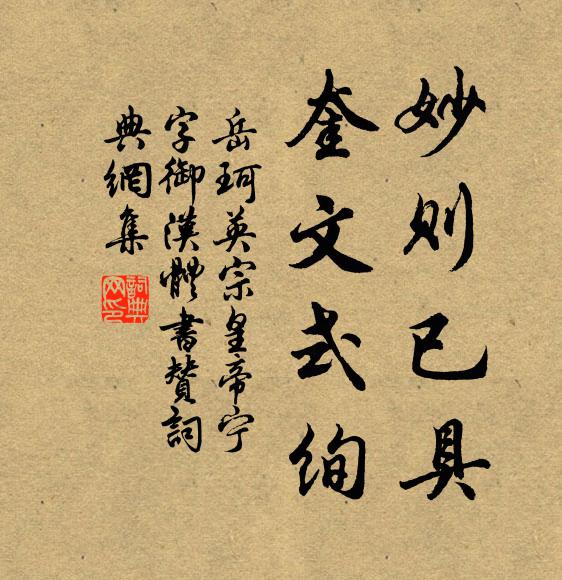 妙则已具
奎文式绚
岳珂英宗皇帝宁
字御漢體書贊詞
典網集
詞典網印